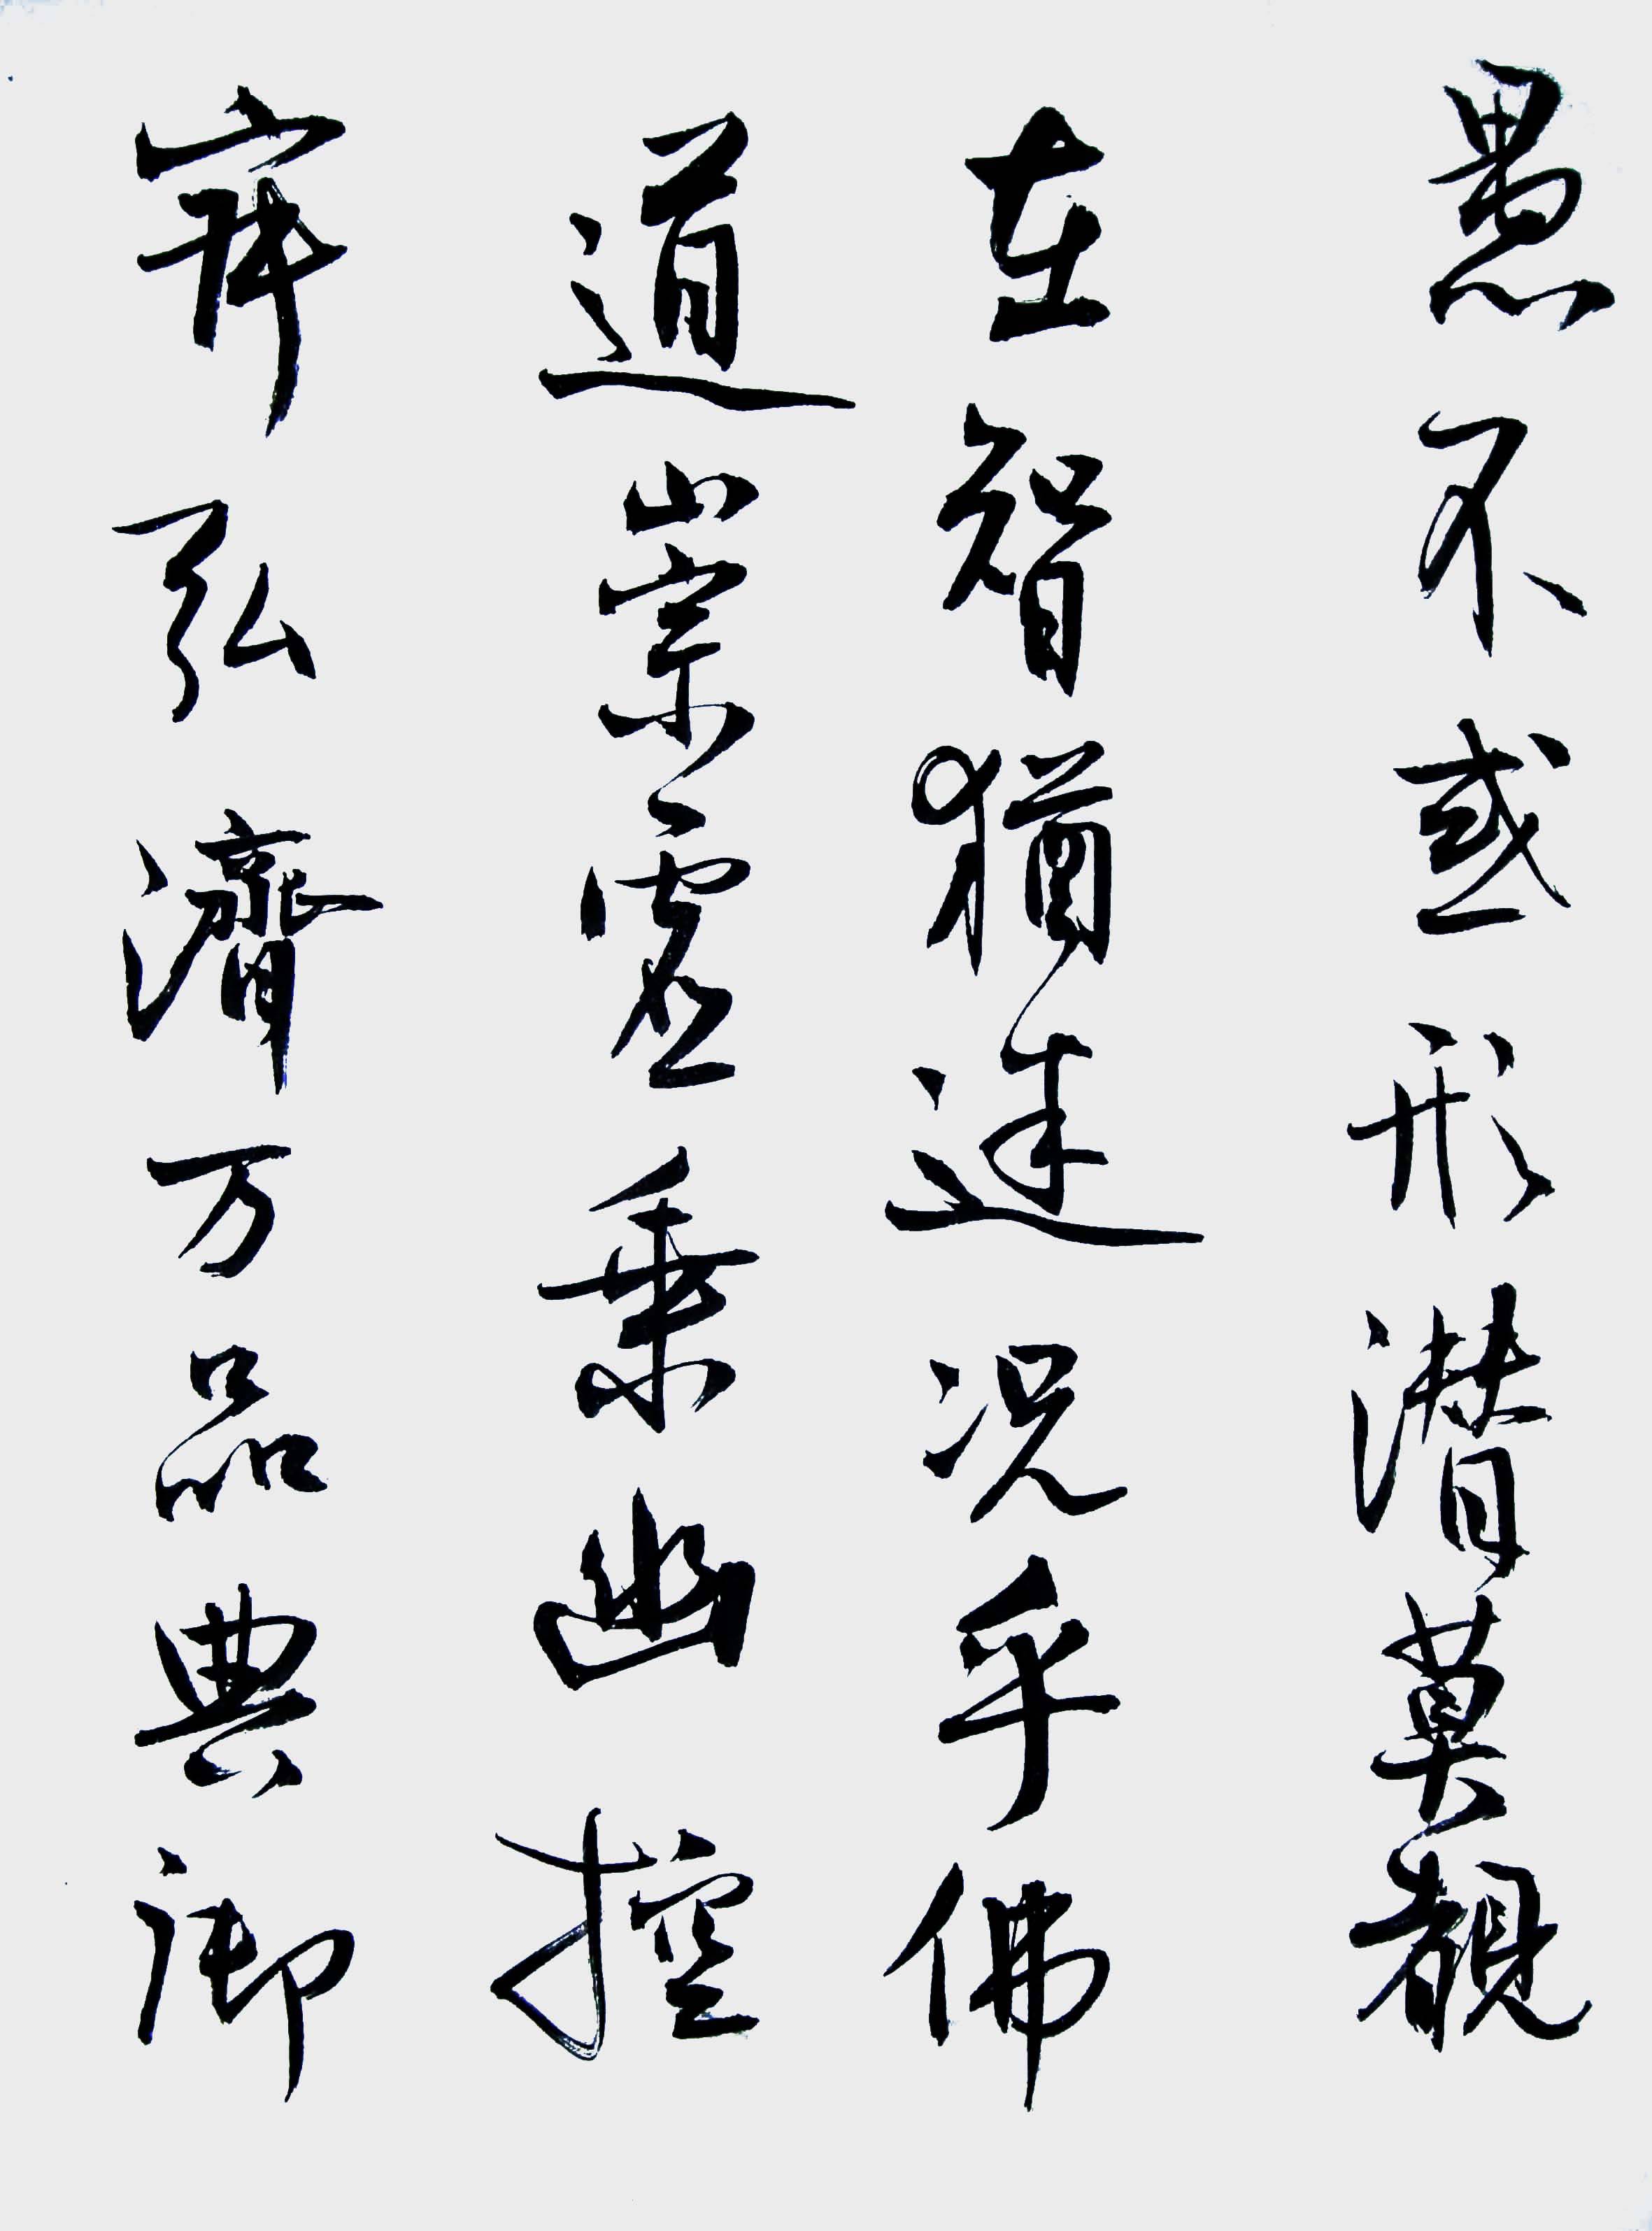 愚不惑形潜莫覩
在智猶迷况乎佛
道崇虚乗幽控
寂弘濟万品典御